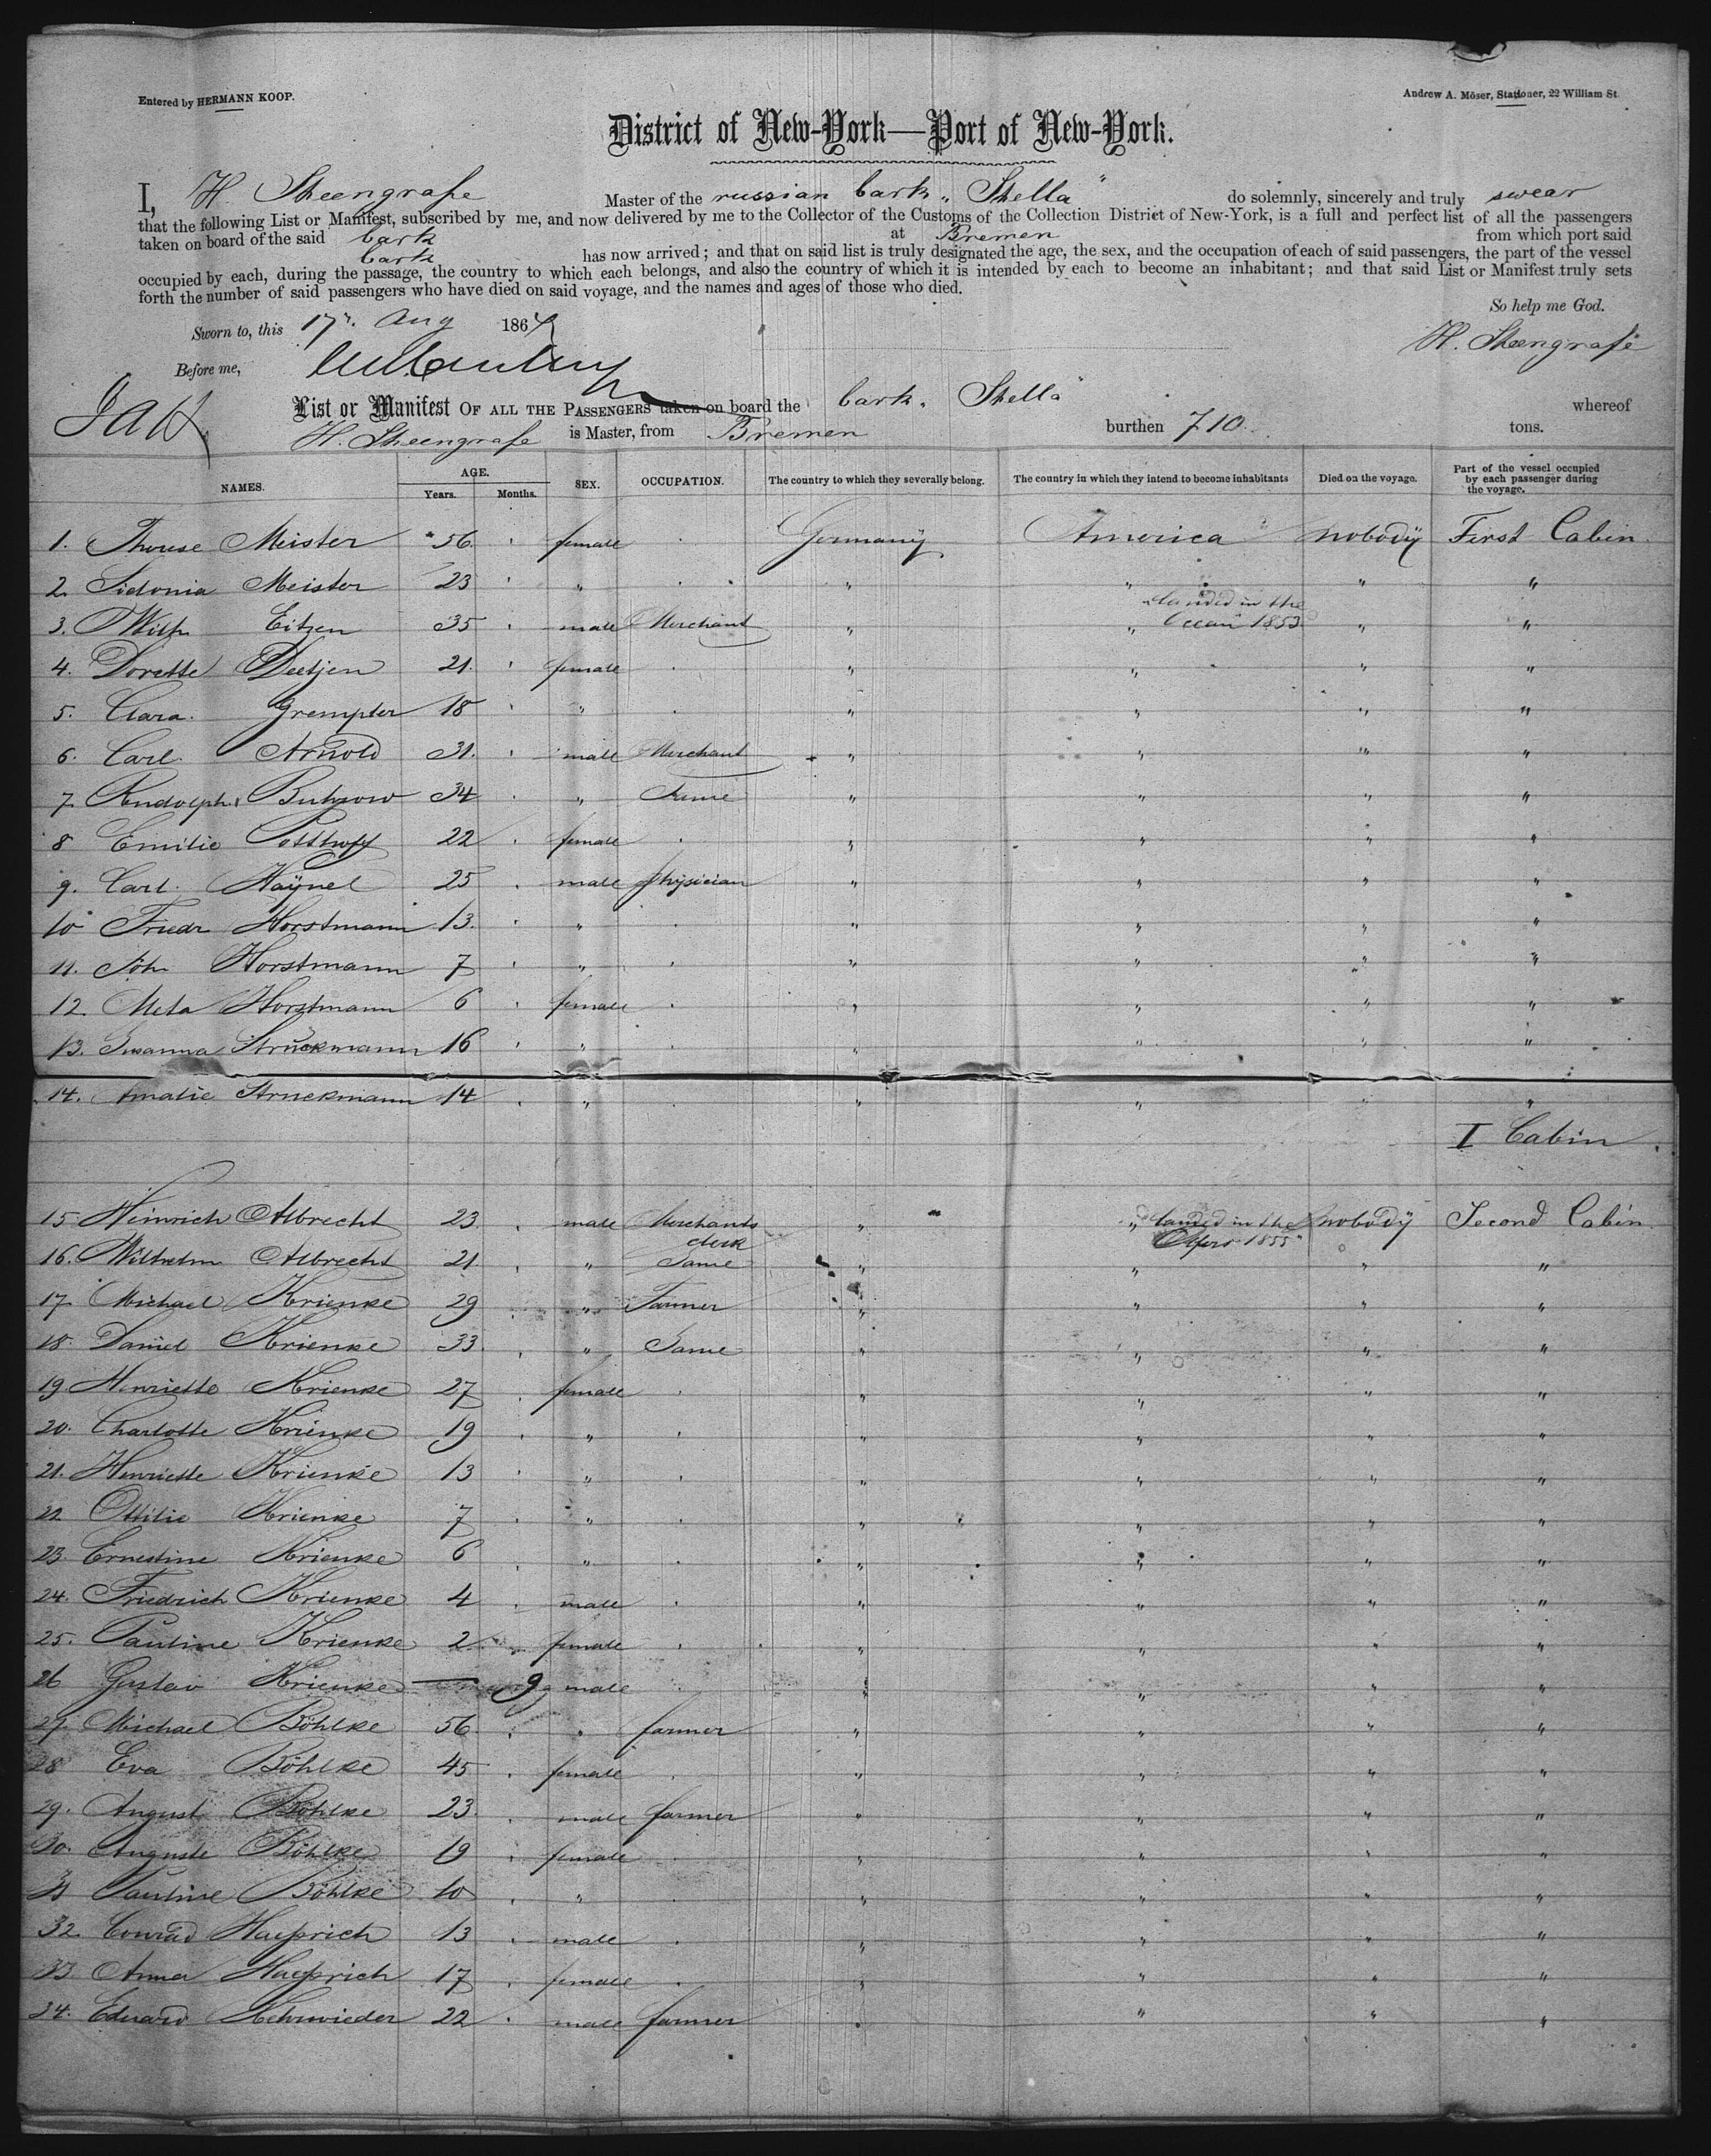 Entered by HERMANN KOOP.
Andrew A. Möser, Stationer, 22 William St.
District of New-York—Port of New-York.
I, H. Steengrafe Master of the russian bark „Stella" do solemnly, sincerely and truly swear
that the following List or Manifest, subscribed by me, and now delivered by me to the Collector of the Customs of the Collection District of New-York, is a full and perfect list of all the passengers
taken on board of the said bark at Bremen from which port said
bark has now arrived; and that on said list is truly designated the age, the sex, and the occupation of each of said passengers, the part of the vessel
occupied by each, during the passage, the country to which each belongs, and also the country of which it is intended by each to become an inhabitant; and that said List or Manifest truly sets
forth the number of said passengers who have died on said voyage, and the names and ages of those who died.
So help me God.
Sworn to, this 17. Aug 186
H. Steengrafe
Before me,
List or Manifest OF ALL THE PASSENGERS taken on board the bark „Stella" whereof
H. Steengrafe is Master, from Bremen burthen 710 tons.
NAMES. AGE. Years. Months. SEX. OCCUPATION. The country to which they severally belong. The country in which they intend to become inhabitants Died on the voyage. Part of the vessel occupied by each passenger during the voyage.
1. Therese Meister 56 female Germany America nobody First Cabin
2. Sidonia Meister 23 " " " " "
landed in the
3. Wilh. Eitzen 35 male Merchant " " Ocean 1853 " "
4. Dorette Deetjen 21. female " " " "
5. Clara Grempler 18 " " " " "
6. Carl Arnold 31. male Merchant " " " "
7. Rudolph Butzow 34 " Same " " " "
8 Emilie Potthoff 22 female " " " "
9. Carl Haÿnel 25 male physician " " " "
10 Friedr Horstmann 13. " " " " "
11. Joh Horstmann 7 " " " " "
12. Meta Horstmann 6 female " " " "
13. Susanna Struckmann 16 " " " " "
14. Amalie Struckmann 14 " " " " "
I Cabin
15 Heinrich Albrecht 23 male Merchants clerk " " landed in the 1855 nobody Second Cabin
16. Wilhelm Albrecht 21. " Same " " " "
17. Michael Krienke 29 " Farmer " " " "
18. Daniel Krienke 33. " Same " " " "
19. Henriette Krienke 27 female " " " "
20. Charlotte Krienke 19 " " " " "
21. Henriette Krienke 13 " " " " "
22 Ottilie Krienke 7 " " " " "
23. Ernestine Krienke 6 " " " " "
24. Friedrich Krienke 4 male " " " "
25. Pauline Krienke 2 female " " " "
26 Gustav Krienke — 9 male " " " "
27. Michael Böhlke 56 " farmer " " " "
28 Eva Böhlke 45 female " " " "
29. August Böhlke 23. male farmer " " " "
30. Auguste Böhlke 19 female " " " "
31 Pauline Böhlke 10 " " " " "
32. Conrad 13 male " " " "
33. Anna 17 female " " " "
34. Eduard 22 male farmer " " " "